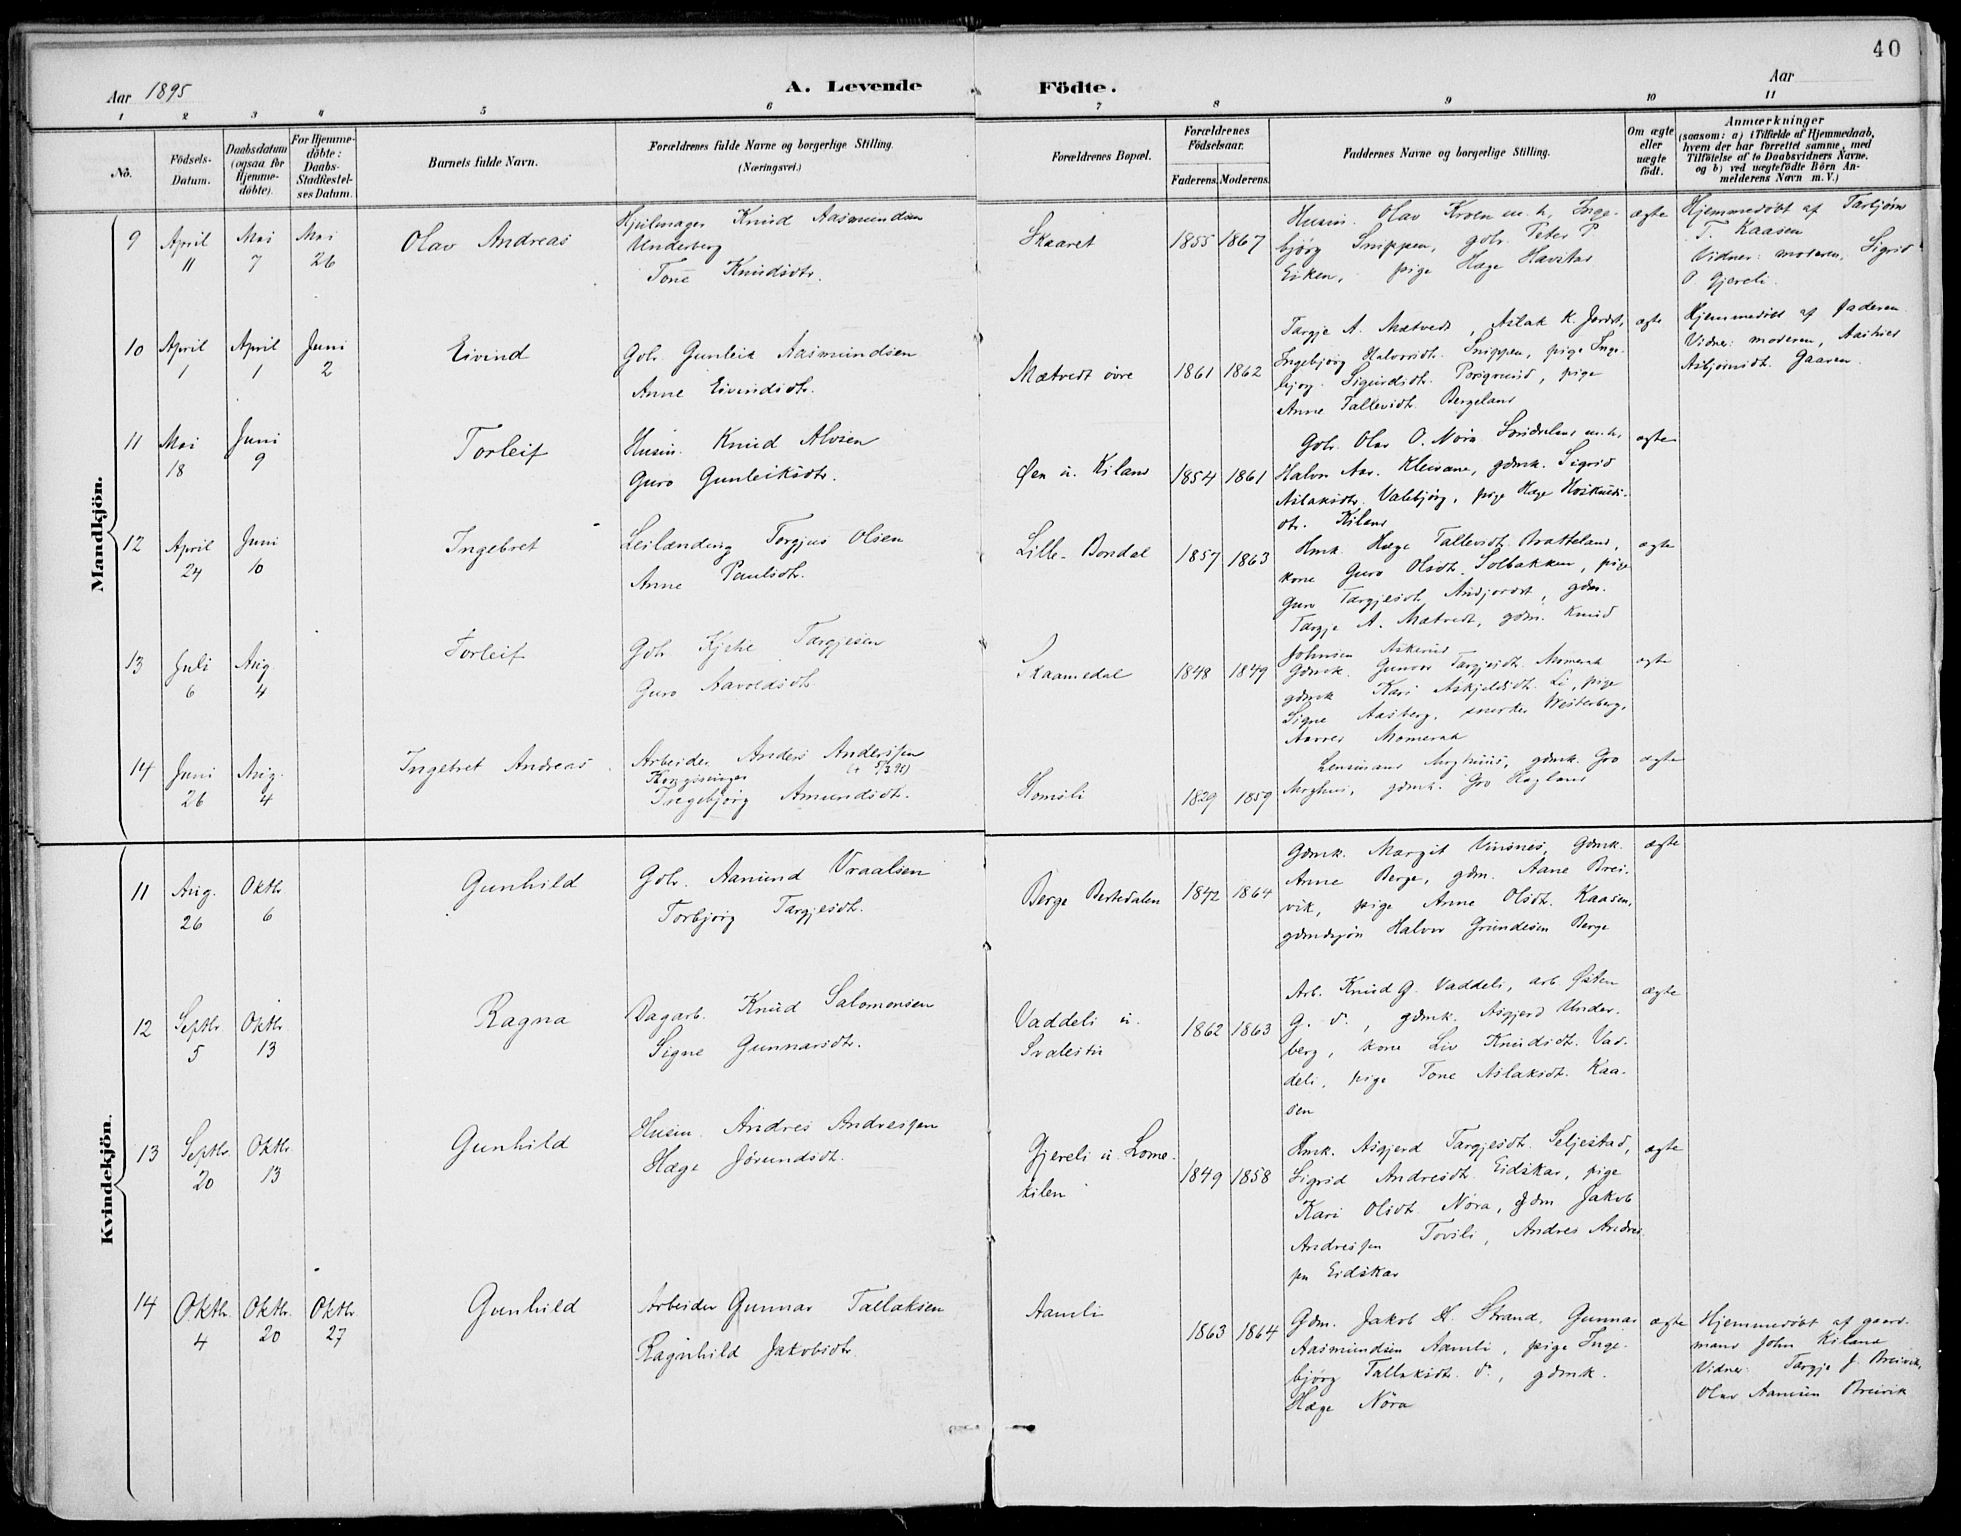 40
Aar 1895
A. Levende Födte.
Aar
1 2 3 4 5 6 7 8 9 10 11
No.
Födsels-Datum.
Daabsdatum (ogsaa for Hjemmedöbte).
For Hjemmedöbte: Daabs-Stadfæstelses Datum.
Barnets fulde Navn.
Forældrenes fulde Navne og borgerlige Stilling.
(Næringsvei.)
Forældrenes Bopæl.
Forældrenes Födselsaar.
Faderens. Moderens.
Faddernes Navne og borgerlige Stilling.
Om ægte eller uægte födt.
Anmærkninger
(saasom: a) i Tilfælde af Hjemmedaab, hvem der har forrettet samme, med Tilföielse af to Daabsvidners Navne, og b) ved uægtefödte Börn Anmelderens Navn m. V.)
Mandkjön.
9 April 11 Mai 7 Mai 26 Olav Andreas
Hjulmager Knud Aasmundsen
Underberg
Tone Knudsdtr.
Skaaret 1855 1867
Husm. Olav Kroen m. h, Inge-
björg Snippen, gbr. Peter P.
Eiken, pige Hæge Havstad
ægte
Hjemmedöbt af Tarbjørn
T. Kaasen
Vidner: moderen, Sigrid
O. Gjereli.
10 April 1 April 1 Juni 2 Eivind
Gbr. Gunleik Aasmundsen
Anne Eivindsdtr.
Mætvedt övre 1861 1862
Targje A. Mætvedt, Aslak K. Jordet,
Ingebjörg Halvorsdtr. Snippen, pige Inge-
björg Sigurdsdtr. Porsgrund, pige
Anne Tallevsdtr. Bergeland
ægte
Hjemmedöbt af faderen
Vidner: moderen, Aashild
Asbjörnsdt. Gaaren.
11 Mai 18 Juni 9 Torleif
Husm. Knud Alvsen
Guro Gunleiksdtr.
Øen u. Kiland 1854 1861
Gbr. Olav O. Nöra m. h,
Halvor Aas. Kleivane, gdmk. Sigrid
Aslaksdtr. Valebjörg, pige Hæge
dtr. Kiland
ægte
12 April 24 Juni 10 Ingebret
Leilænding Torgjus Olsen
Anne Paulsdtr.
Lille-Bondal 1857 1863
Hmk. Hæge Tallevsdt. Bratteland,
kone Guro Olsdt. Solbakken, pige
Guro Targjesdt. Andjordet, gdm.
Targje A. Mætvedt, gdm. Knud
Johnsen Askerud
ægte
13 Juli 6 Aug 4 Torleif
Gbr. Kjetil Targjesen
Guro Aavoldsdt.
Skaamedal 1848 1849
Gdmk. Gunvor Targjesdt. Momrak
gdmk Kari Askjeldsdt. Li, pige
Signe Aasberg, snerker Vesterberg,
Momrak
ægte
14 Juni 26 Aug. 4 Ingebret Andreas
Arbeider Anders Anderssen
(+ 5/3 95)
Kongsvinger
Ingebjörg Amundsdt.
Homsli 1829 1859
Lensmand Moghus, gdmk. Gro
Moghus, gdmk. Gro Hagland
ægte
Kvindekjön.
11 Aug. 26 Oktbr 6 Gunhild
Gbr. Aanund Vraalsen
Torbjörg Targjesdt.
Berge Bertedalen 1842 1864
Gdmk. Margit Vinsnes, Gdmk.
Anne Berge, gdm. Aane Brei-
vik, pige Anne Olsdt. Kaasen,
gdmdsjön Halvor Grundesen Berge
ægte
12 Septbr 5 Oktbr 13 Ragna
Dagarb. Knud Salomonsen
Signe Gunnarsdt.
Vaddeli u. Svalestu 1862 1863
Arb. Knud G. Vaddeli, arb Østen
G. d°, gdmk. Asgjerd Under-
berg, kone Liv Knudsdt. Vad-
deli, pige Tone Aslaksdt. Kaa-
sen
ægte
13 Septbr. 20 Oktbr 13 Gunhild
Husm. Andres Andressen
Hæge Jörundsdt.
Gjereli u. Lome-
kilen 1849 1858
Hmk. Asgjerd Targjesdt. Seljestad,
Sigrid Andresdt. Eidskar, pige
Kari Olsdt. Nöra, gdm Jakob
Andressen Tovsli, Andres Andres-
sen Eidskar
ægte
14 Oktbr. 4 Oktbr. 20 Oktbr 27 Gunhild
Arbeider Gunnar Tallaksen
Ragnhild Jakobsdtr.
Aamli 1863 1864
Gdm. Jakob H. Strand, Gunnar
Aasmundsen Aamli, pige Inge-
björg Tallaksdt. d°, gdmk.
Hæge Nöra
ægte
Hjemmedöbt af gaard-
mand John Kiland
Vidner: Targje J. Breivik,
Olav Aanesen Breivik